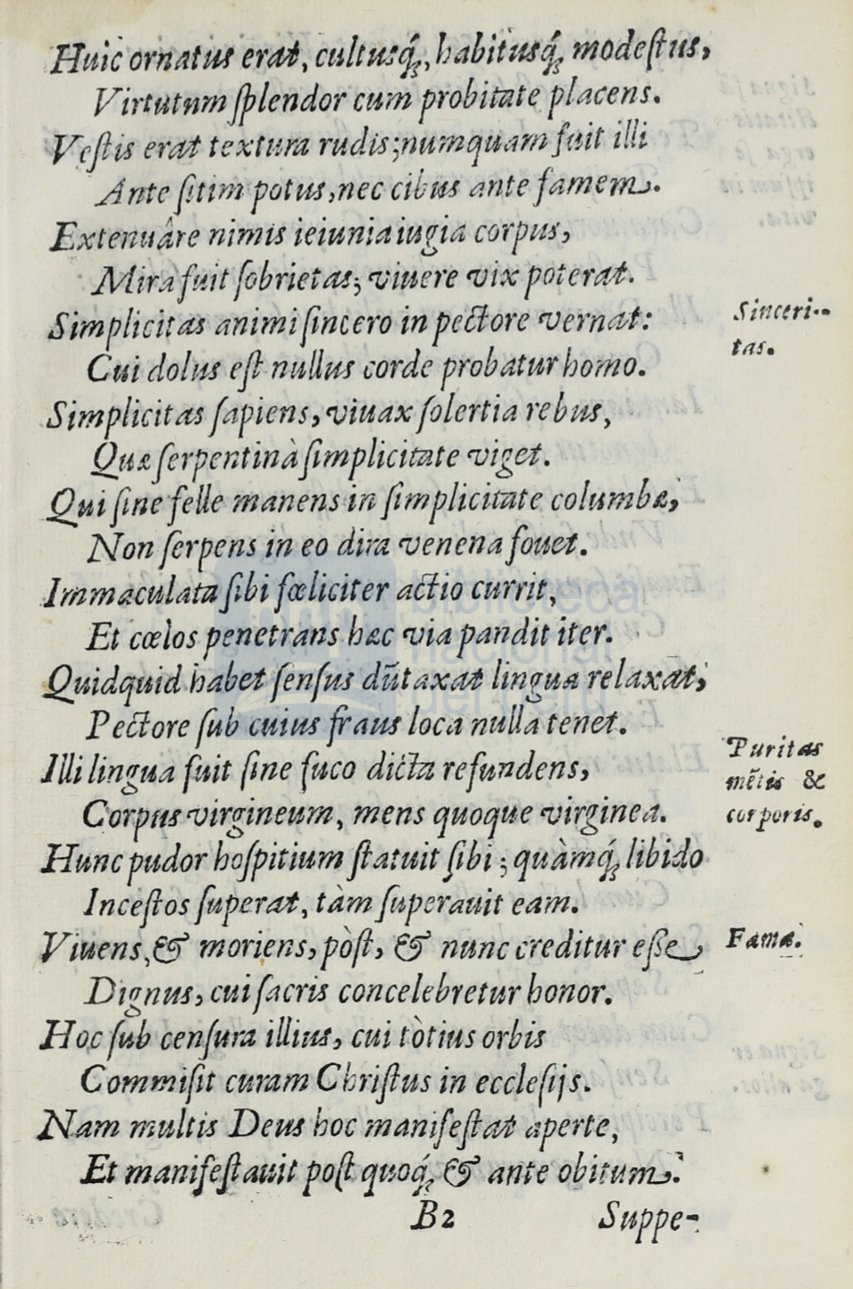 Huic ornatus erat, cultusq́;, habitusq́; modeſtus,
Virtutum ſplendor cum probitate placens.
Veſtis erat textura rudis; numquam fuit illi
Ante ſitim potus, nec cibus ante famem.
Extenuâre nimis ieiunia iugia corpus,
Mira fuit ſobrietas; viuere vix poterat.
Simplicitas animi ſincero in pectore vernat:
Sinceri-
tas.
Cui dolus eſt nullus corde probatur homo.
Simplicitas ſapiens, viuax ſolertia rebus,
Quæ ſerpentinà ſimplicitate viget.
Qui ſine felle manens in ſimplicitate columbæ,
Non ſerpens in eo dira venena fouet.
Immaculata ſibi fœliciter actio currit,
Et cœlos penetrans hæc via pandit iter.
Quidquid habet ſenſus dūtaxat lingua relaxat,
Pectore ſub cuius fraus loca nulla tenet.
Illi lingua fuit ſine fuco dicta refundens,
Puritas
mētis &
corporis.
Corpus virgineum, mens quoque virginea.
Hunc pudor hoſpitium ſtatuit ſibi; quàmq́; libido
Inceſtos ſuperat, tàm ſuperauit eam.
Viuens, & moriens, pòſt, & nunc creditur eſſe
Fama.
Dignus, cui ſacris concelebretur honor.
Hoc ſub cenſura illius, cui tòtius orbis
Commiſit curam Chriſtus in eccleſijs.
Nam multis Deus hoc manifeſtat aperte,
Et manifeſtauit poſt quoq́; & ante obitum.
B2
Suppe-